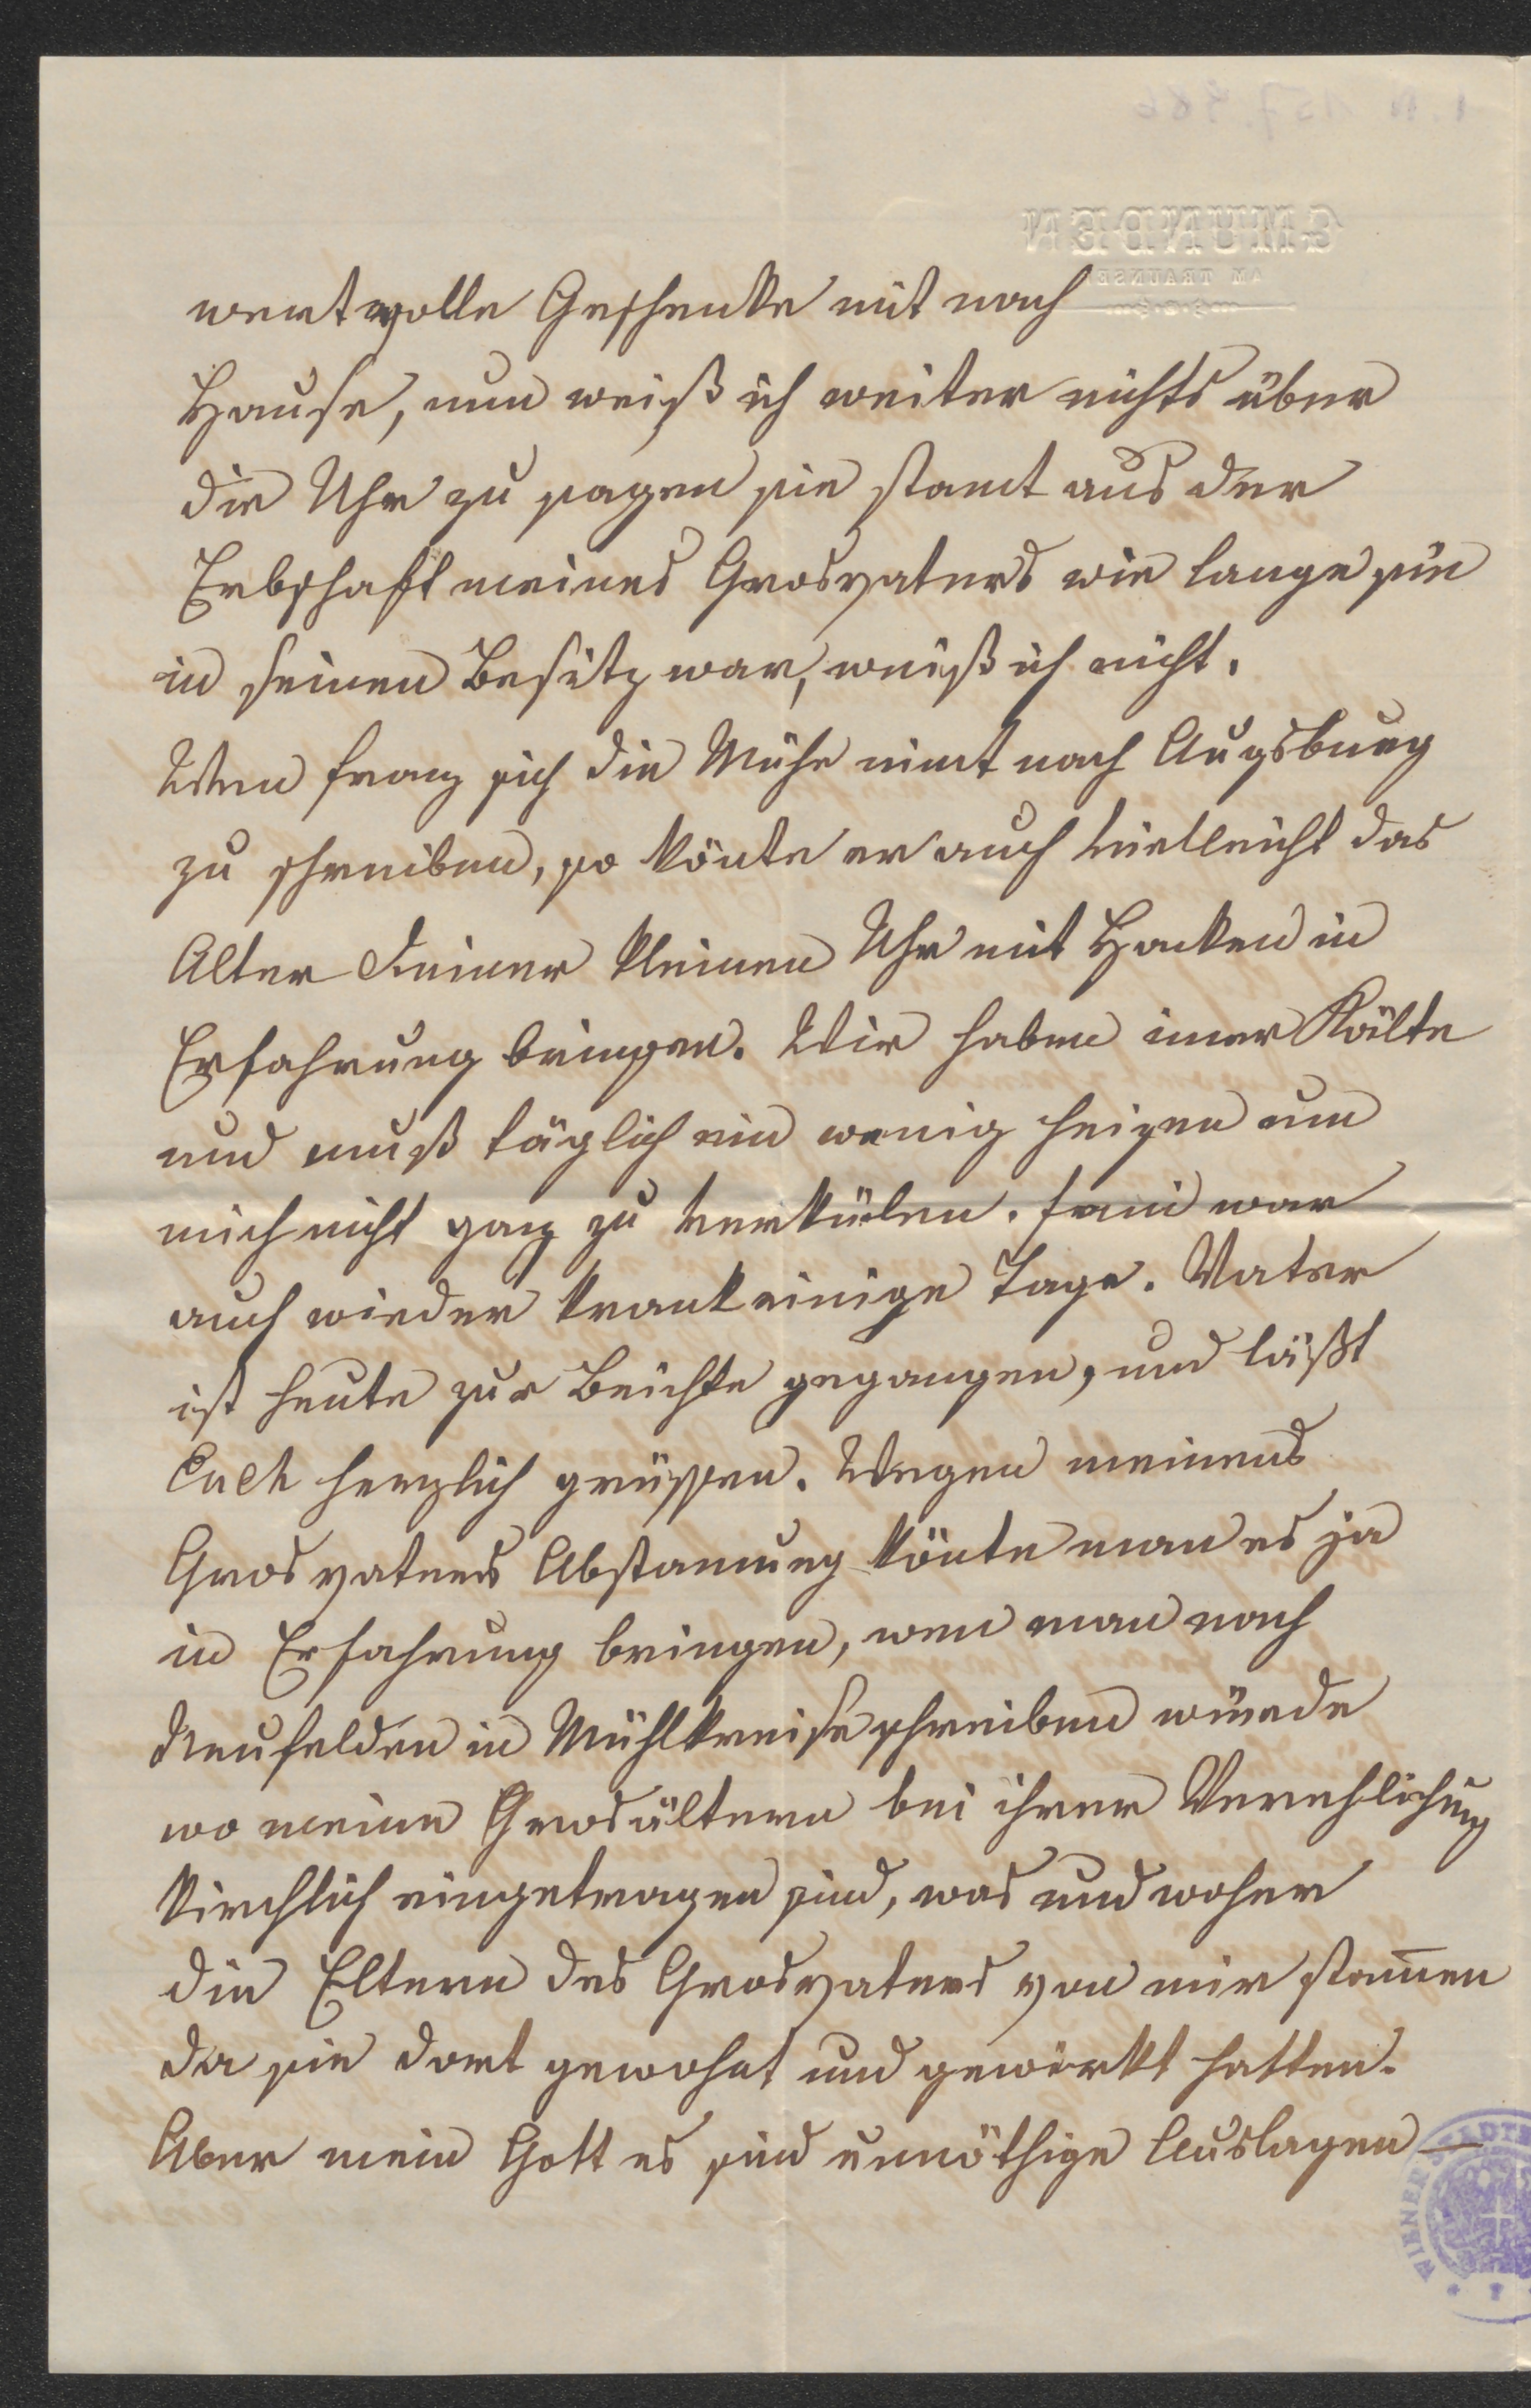 GMUNDEN
AM TRAUNSEE
wertvolle Geschenke mit nach
Hause, nun weiß ich weiter nichts über
die Uhr zu sagen sie stamt aus der
Erbschaft meines Grosvaters wie lange sie
in seinen Besitz war, weiß ich nicht.
Wen Franz sich die Mühe nimt nach Augsburg
zu schreiben, so könte er auch vielleicht das
Alter Deiner kleinen Uhr mit Hacken in
Erfahrung bringen. Wir haben imer Kälte
und muß täglich ein wenig heizen um
mich nicht ganz zu verkülen. Fani war
auch wieder krank einige Tage. Vater
ist heute zur Beichte gegangen, und läßt
Euch herzlich grüssen. Wegen meines
Grosvaters Abstamung könte man es ja
in Erfahrung bringen, wen man nach
Neufelden in Mühlkreise schreiben würde
wo meine Grosältern bei ihrer Verehlichung
kirchlich eingetragen sind, was und woher
die Eltern des Grosvaters von mir stam̅en
da sie dort gewohnt und gewirkt hatten.
Aber mein Gott es sind unnöthige Auslagen —
WIENER STADT